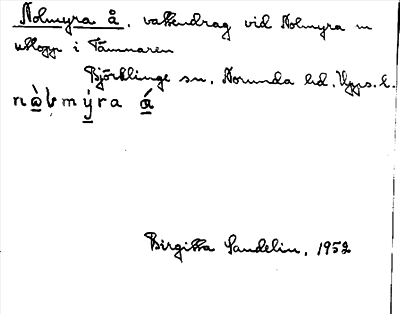 Nolmyra å, vattendrag vid Nolmyra m
utlopp i Tämnaren
Björklinge sn, Norunda hd, Upps. l.
nὰlmy̍ra á
Birgitta Sandelin, 1952